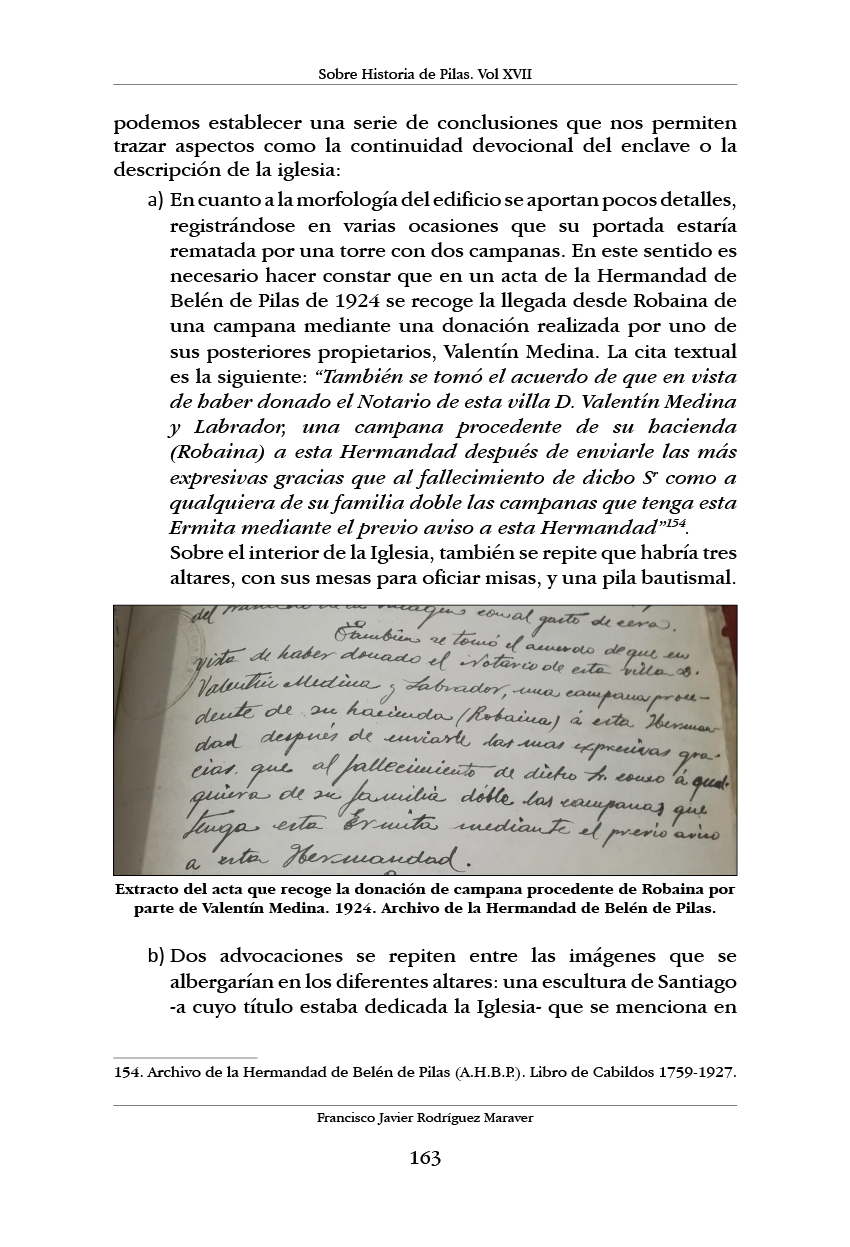 Sobre Historia de Pilas. Vol XVII
podemos establecer una serie de conclusiones que nos permiten
trazar aspectos como la continuidad devocional del enclave o la
descripción de la iglesia:
a) En cuanto a la morfología del edificio se aportan pocos detalles,
registrándose en varias ocasiones que su portada estaría
rematada por una torre con dos campanas. En este sentido es
necesario hacer constar que en un acta de la Hermandad de
Belén de Pilas de 1924 se recoge la llegada desde Robaina de
una campana mediante una donación realizada por uno de
sus posteriores propietarios, Valentín Medina. La cita textual
es la siguiente: “También se tomó el acuerdo de que en vista
de haber donado el Notario de esta villa D. Valentín Medina
y Labrador, una campana procedente de su hacienda
(Robaina) a esta Hermandad después de enviarle las más
expresivas gracias que al fallecimiento de dicho Sr como a
qualquiera de su familia doble las campanas que tenga esta
Ermita mediante el previo aviso a esta Hermandad”154.
Sobre el interior de la Iglesia, también se repite que habría tres
altares, con sus mesas para oficiar misas, y una pila bautismal.
del imagen con al gasto de cera.
También se tomó el acuerdo de que en
vista de haber donado el Notario de esta villa D.
Valentin Medina y Labrador, una campana proce-
dente de su hacienda (Robaina) á esta Herman
dad después de enviarle las mas expresivas gra-
cias que al fallecimiento de dicho Sr. como á qual-
quiera de su familia dóble las campanas que
tenga esta Ermita mediante el previo aviso
a esta Hermandad.
Extracto del acta que recoge la donación de campana procedente de Robaina por
parte de Valentín Medina. 1924. Archivo de la Hermandad de Belén de Pilas.
b) Dos advocaciones se repiten entre las imágenes que se
albergarían en los diferentes altares: una escultura de Santiago
-a cuyo título estaba dedicada la Iglesia- que se menciona en
154. Archivo de la Hermandad de Belén de Pilas (A.H.B.P.). Libro de Cabildos 1759-1927.
Francisco Javier Rodríguez Maraver
163